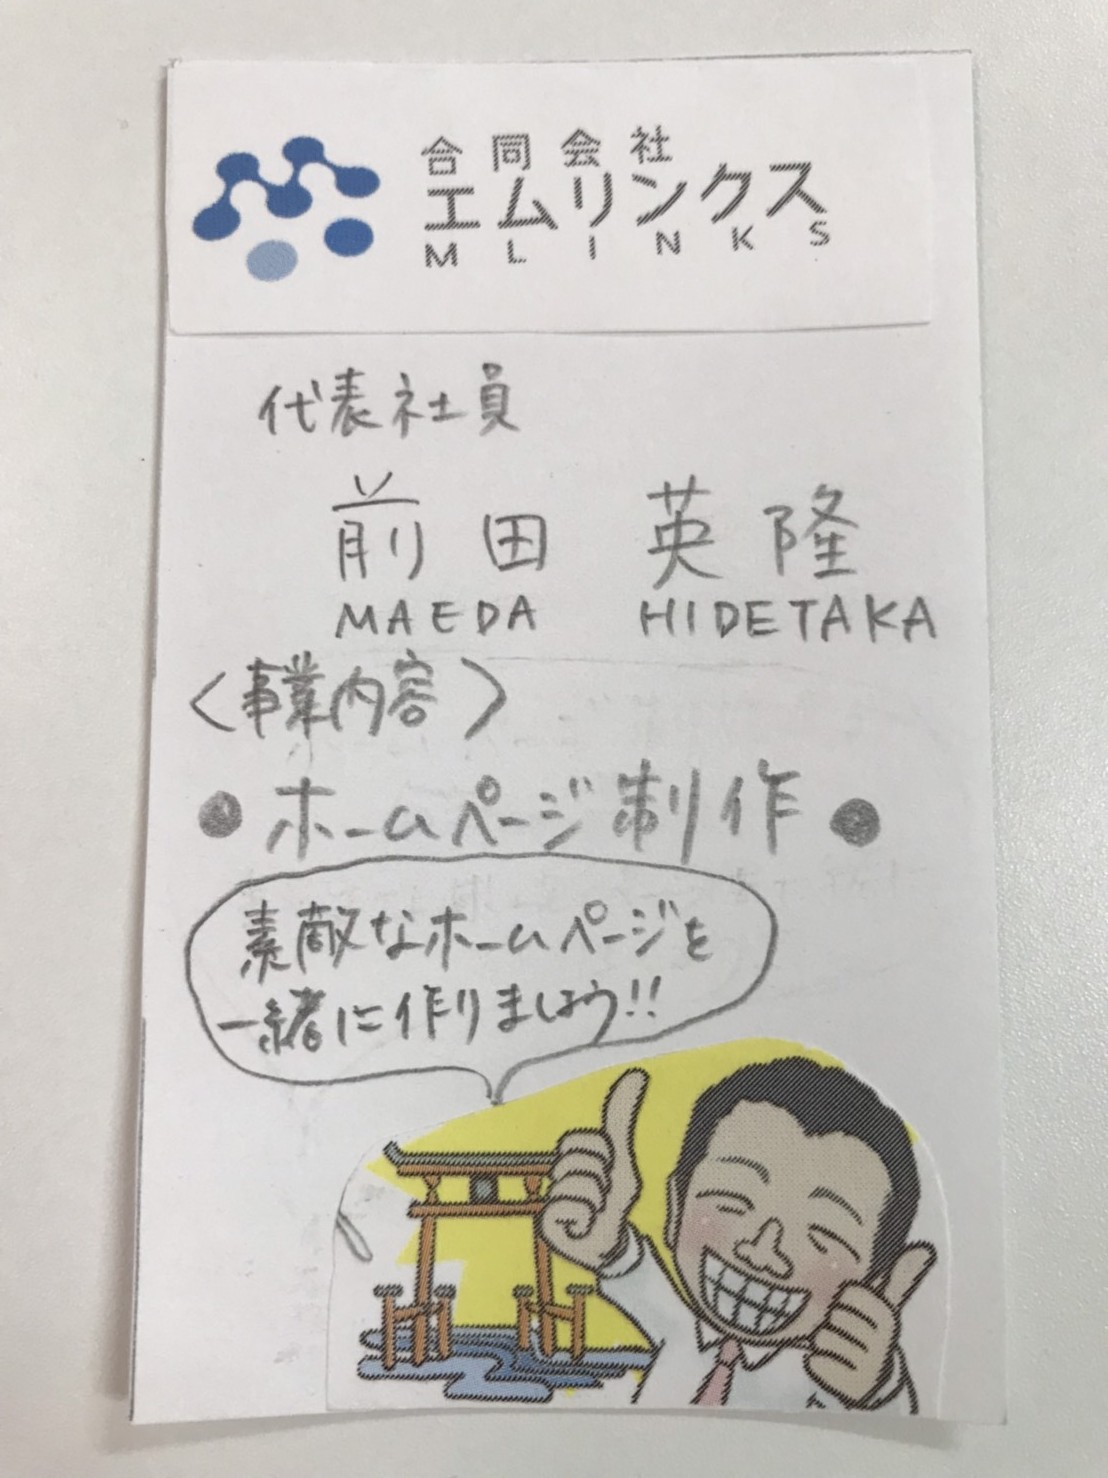 合同会社
エムリンクス
MLINKS
代表社員
前田 英隆
MAEDA HIDETAKA
〈事業内容〉
●ホームページ制作●
素敵なホームページを
一緒に作りましょう!!